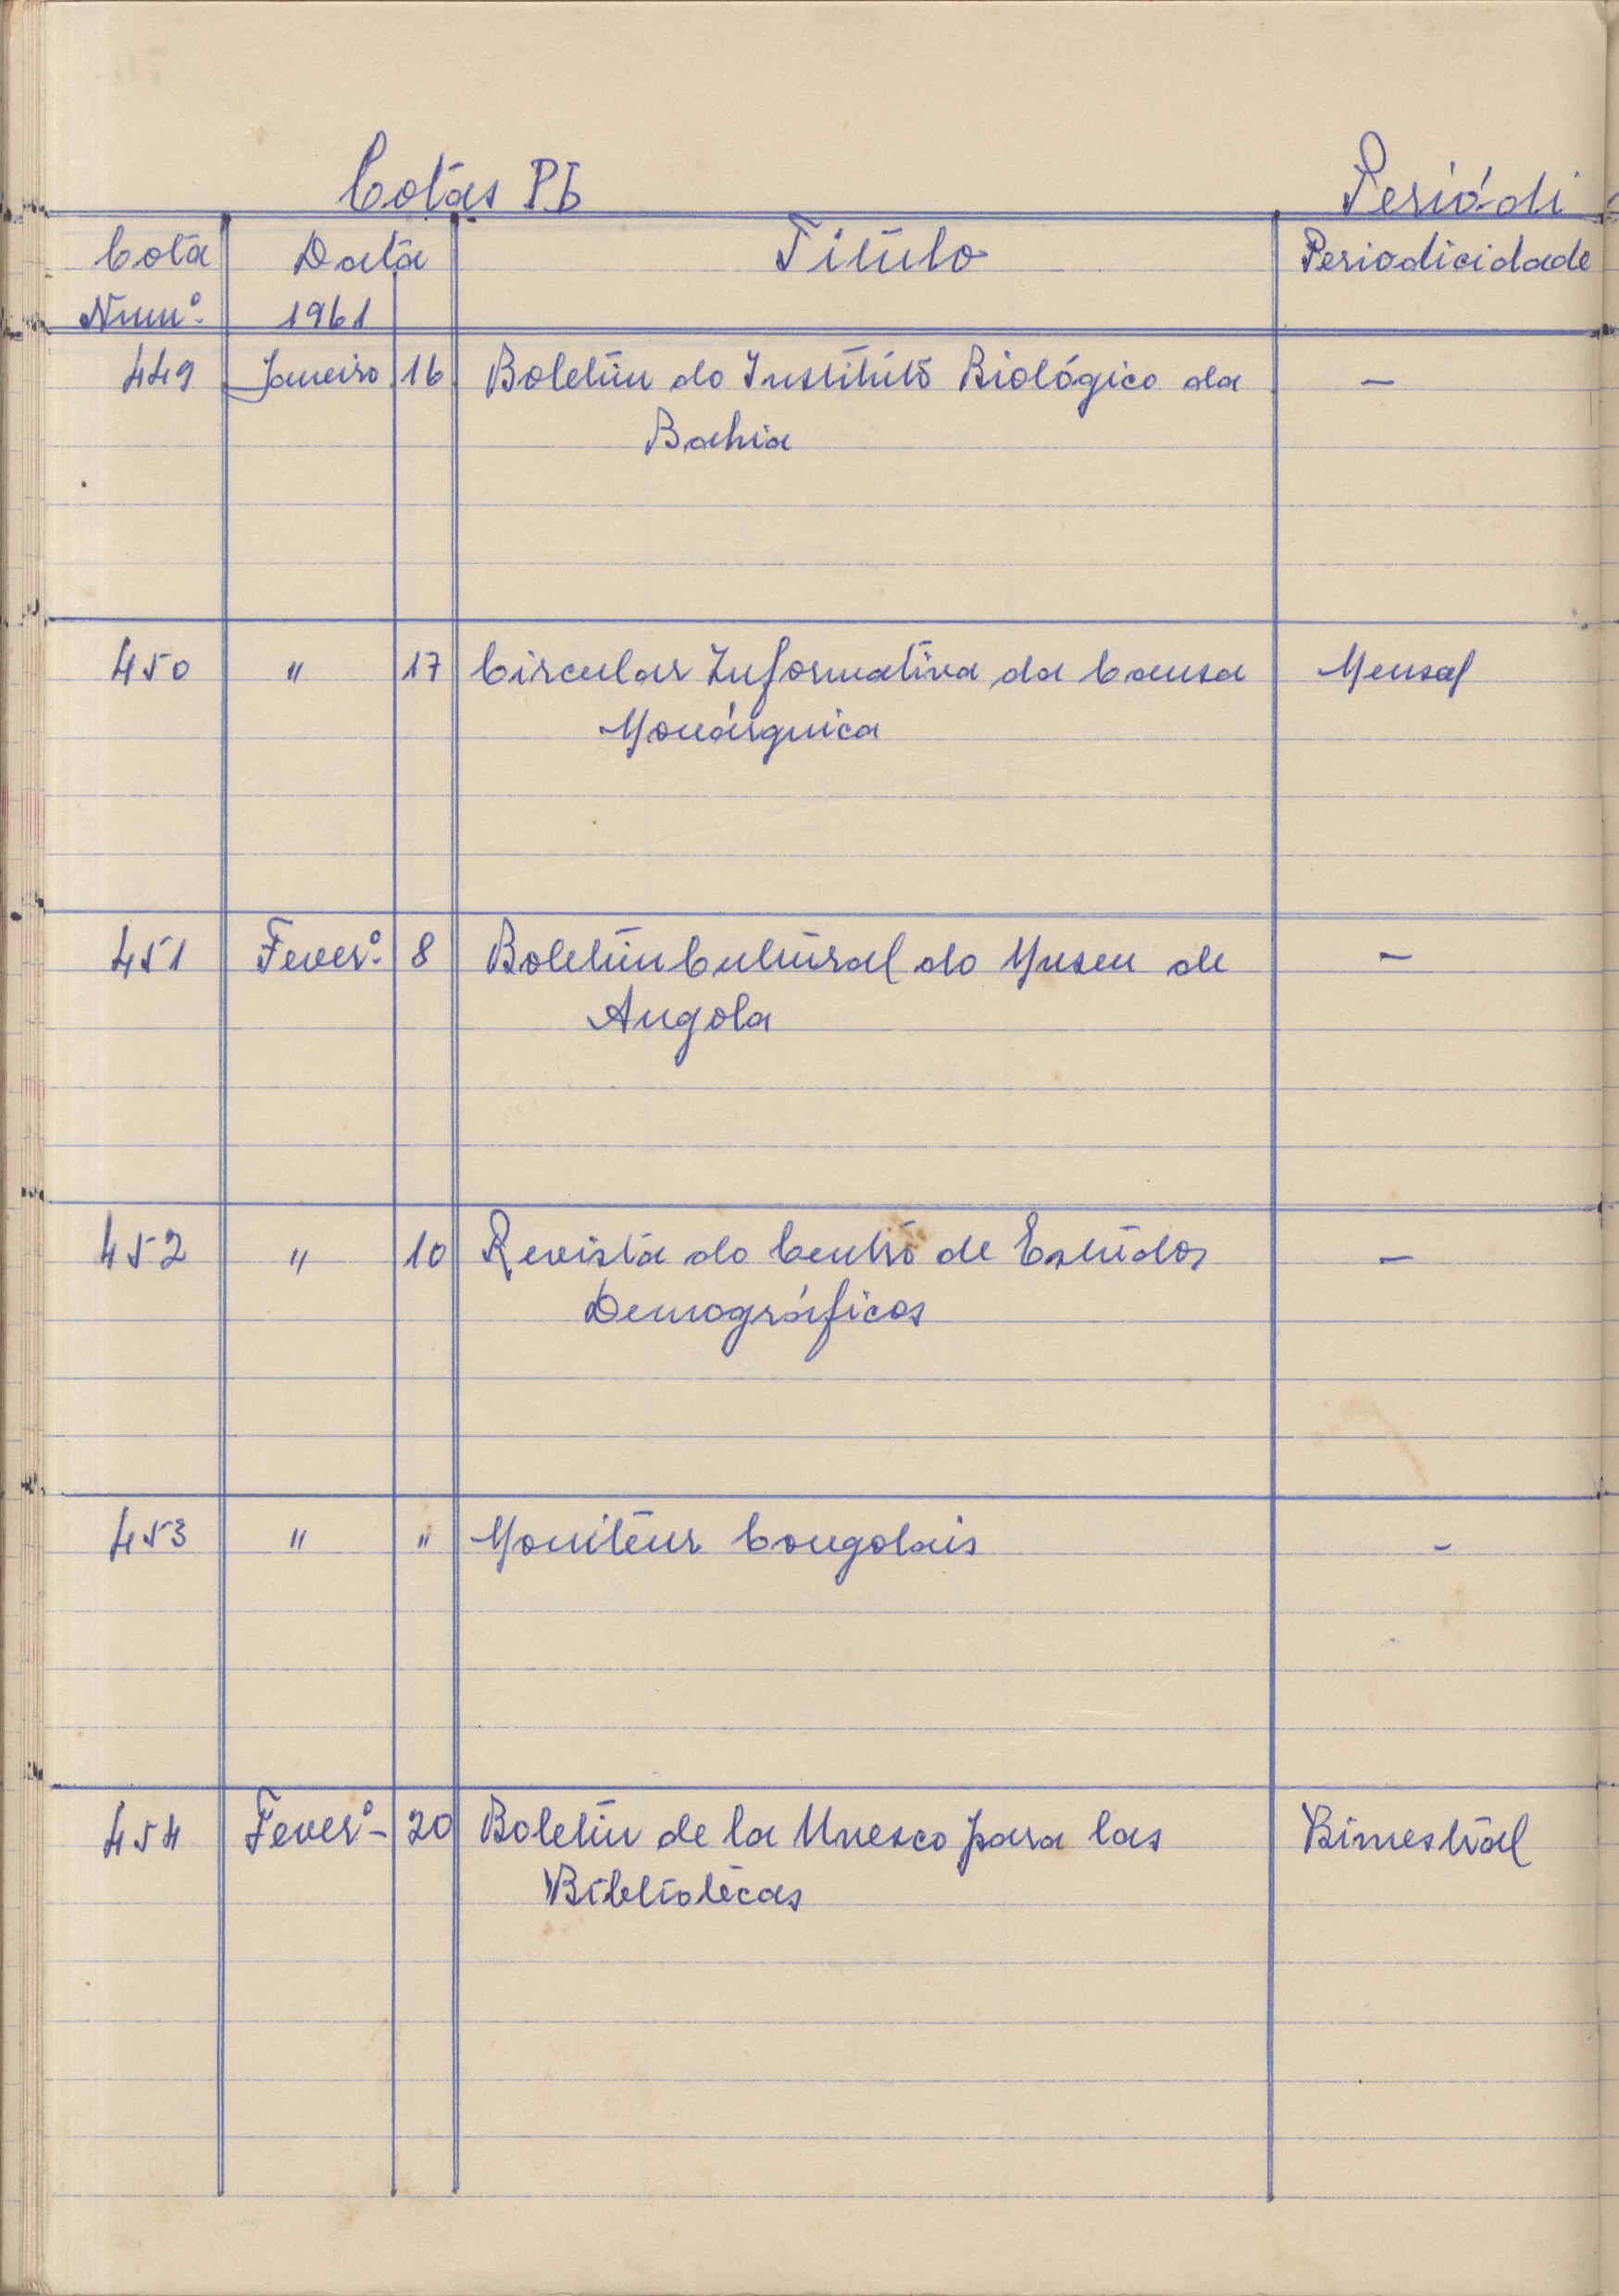 Cotas P.b Periódi
Cota Data Titulo Periodicidade
Numº. 1961
449 Janeiro 16 Boletim do Instituto Biológico da —
Bahia
450 " 17 Circular Informativa da Causa Mensal
Monárquica
451 Feverº. 8 Boletim Cultural do Museu de —
Angola
452 " 10 Revista do Centro de Estudos —
Demográficos
453 " " Moniteur Congolais -
454 Feverº- 20 Boletin de la Unesco para las Bimestral
Bibliotecas